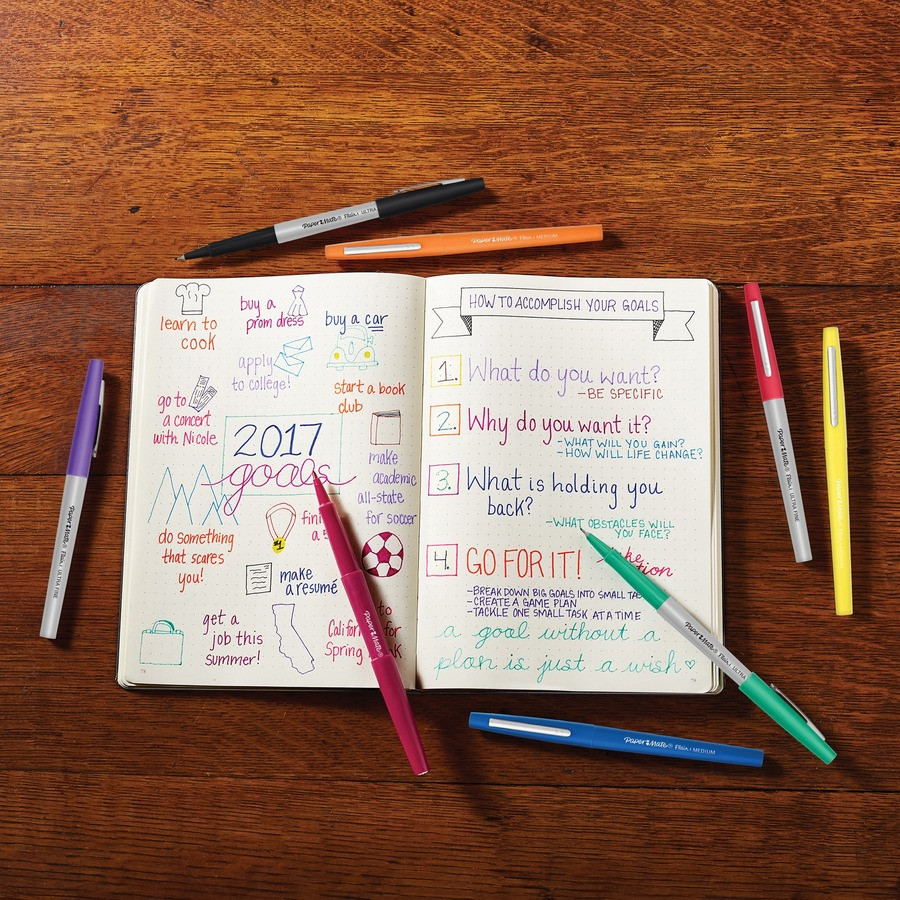 Paper Mate® Flair. ULTRA
Paper Mate® Flair. MEDIUM
learn to
cook
buy a
prom dress
buy a car
apply
to college!
start a book
club
go to
a concert
with Nicole
2017
goals
make
academic
all-state
for soccer
do something
that scares
you!
#1
make
a resumé
get a
job this
summer!
to
for
Spring
HOW TO ACCOMPLISH YOUR GOALS
1. What do you want?
-BE SPECIFIC
2. Why do you want it?
-WHAT WILL YOU GAIN?
-HOW WILL LIFE CHANGE?
3. What is holding you
back?
-WHAT OBSTACLES WILL
YOU FACE?
4. GO FOR IT!
-BREAK DOWN BIG GOALS INTO SMALL
-CREATE A GAME PLAN
-TACKLE ONE SMALL TASK AT A TIME
a goal without a
plan is just a wish
Paper Mate® Flair. ULTRA FINE
Paper Mate® Flair. ULTRA FINE
Paper Mate® Flair. MEDIUM
Paper Mate®
Paper Mate® Flair. ULTRA
Paper Mate® Flair. MEDIUM